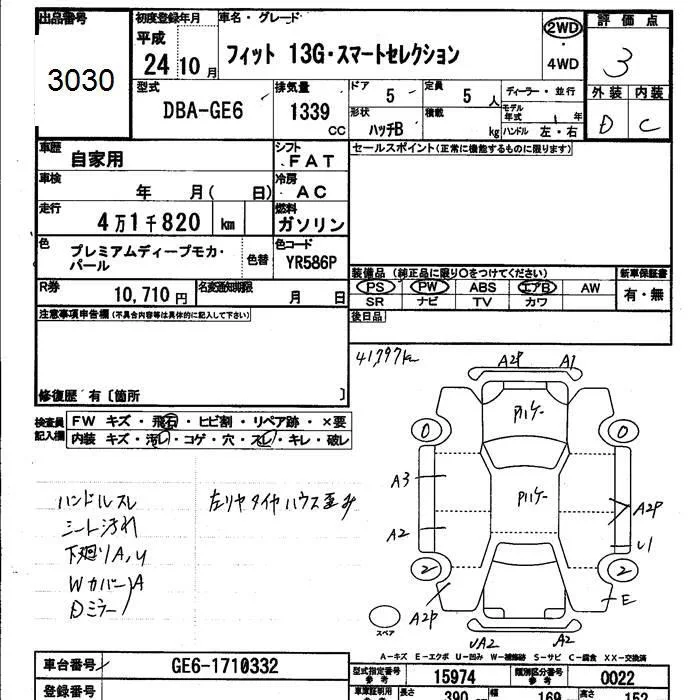 出品番号 初度登録年月 車名・グレード 評価点
3030 平成 24年10月 フィット 13G・スマートセレクション 2WD・4WD 3
型式 排気量 ドア 定員 ディーラー・並行 外装 内装
DBA-GE6 1339 CC 5 5人 モデル年式 1年 D C
形状 ハッチB 積載 kg ハンドル 左・右
車歴 自家用 シフト FAT セールスポイント(正常に機能するものに限ります)
車検 年 月( 日) 冷房 AC
走行 4万1千820 km 燃料 ガソリン
色 プレミアムディープモカ・パール 色替 色コード YR586P
装備品(純正品に限り○をつけてください) 新車保証書
R券 10,710円 名変通知期限 月 日
PS PW ABS エアB AW 有・無
SR ナビ TV カワ
注意事項申告欄(不具合内容等は具体的に記入して下さい) 後日品
41797km
修復歴 有〔箇所 〕
検査員記入欄 FW キズ・飛石・ヒビ割・リペア跡・×要
内装 キズ・汚レ・コゲ・穴・スレ・キレ・破レ
A2P A1
0 0
A3
A2 A2P
U1
2 2
A2P E
UA2 A2
スペア
ハンドルスレ 左リヤタイヤハウス歪み
シート汚れ
下廻りA,U
WカバーA
Dミラー)
A-キズ E-エクボ U-凹み W-補修跡 S-サビ C-腐食 XX-交換済
車台番号 GE6-1710332 型式指定番号 参考 15974 類別区分番号 参考 0022
登録番号 車庫証明用 参考 長さ 390 幅 169 高さ 152